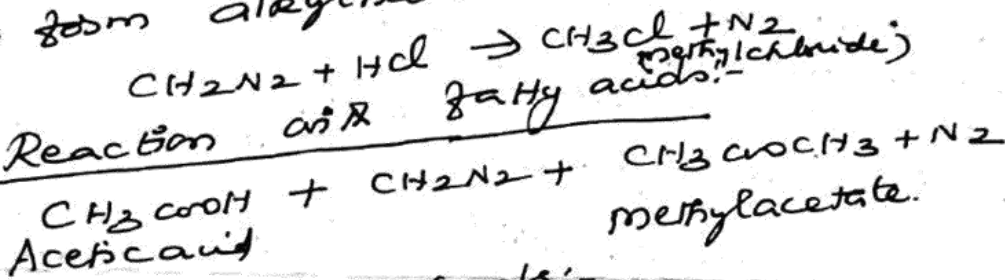 form alkyl
CH2N2 + HCl → CH3Cl + N2
(methylchloride)
Reaction with fatty acids:-
CH3COOH + CH2N2 + CH3COOCH3 + N2
Acetic acid methylacetate.